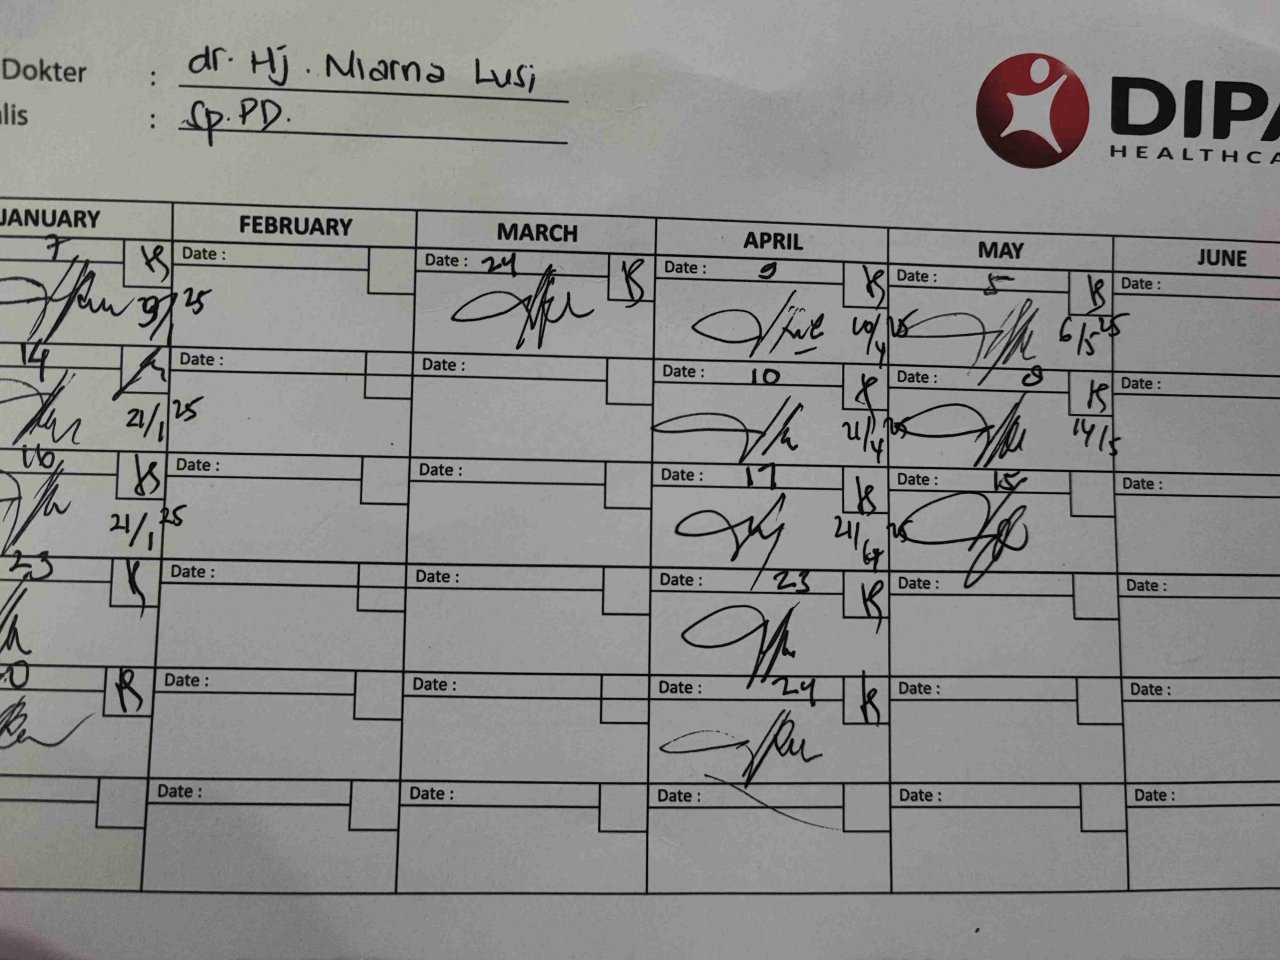 Dokter : dr. Hj. Niarna Lusi
alis : Sp.PD.
DIPA
HEALTHCA
JANUARY FEBRUARY MARCH APRIL MAY JUNE
7 Date : Date : 24 Date : 9 Date : 5 Date :
25 10/4 25 6/5 25
14 Date : Date : Date : 10 Date : 8 Date :
21/1 25 21/4 25 14/5
16 Date : Date : Date : 17 Date : 15 Date :
21/1 25 21/ 25
23 Date : Date : Date : 23 Date : Date :
Date : Date : Date : 24 Date : Date :
Date : Date : Date : Date : Date :